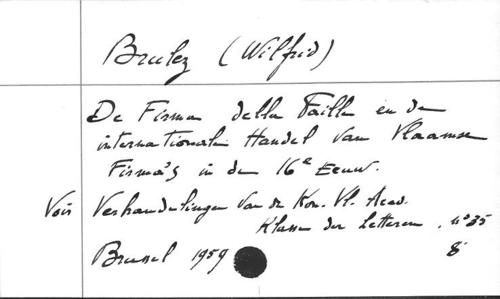 Brulez (Wilfrid)
De Firma della Faille en de
internationale Handel van Vlaamse
Firma's in de 16e Eeuw.
Voir Verhandelingen van de Kon. Vl. Acad.
Klasse der Letteren. n° 35
Brussel 1959 8°